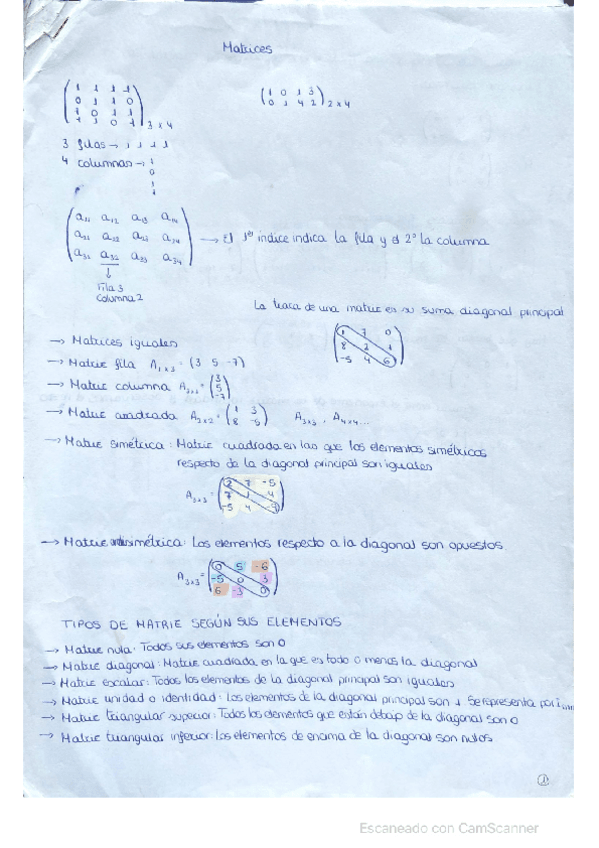 Matrices
1 1 1 1
0 1 1 0
1 0 1 1
1 1 0 1
3 x 4
1 0 1 3
0 1 4 2
2 x 4
3 filas → 1 1 1 1
4 columnas → 1
0
1
1
a11 a12 a13 a14
a21 a22 a23 a24
a31 a32 a33 a34
→ El 1er índice indica la fila y el 2º la columna
↓
Fila 3
Columna 2
La traza de una matriz es su suma diagonal principal
1 7 0
8 2 1
-5 4 6
→ Matrices iguales
→ Matriz fila A1x3 = (3 5 -7)
→ Matriz columna A3x1 = (3
5
-7)
→ Matriz cuadrada A2x2 = (1 3
8 -5) A3x3 , A4x4...
→ Matriz simétrica : Matriz cuadrada en las que los elementos simétricos
respecto de la diagonal principal son iguales
A3x3 =
2 7 -5
7 1 4
-5 4
→ Matriz antisimétrica: Los elementos respecto a la diagonal son opuestos
A3x3 =
0 5 -6
-5 0 3
6 -3 0
TIPOS DE MATRIE SEGÚN SUS ELEMENTOS
→ Matriz nula: Todos sus elementos son 0
→ Matriz diagonal: Matriz cuadrada en la que es todo 0 menos la diagonal
→ Matriz escalar: Todos los elementos de la diagonal principal son iguales
→ Matriz unidad o identidad: Los elementos de la diagonal principal son 1. Se representa por I
→ Matriz triangular superior: Todos los elementos que están debajo de la diagonal son 0
→ Matriz triangular inferior: los elementos de encima de la diagonal son nulos
1
Escaneado con CamScanner